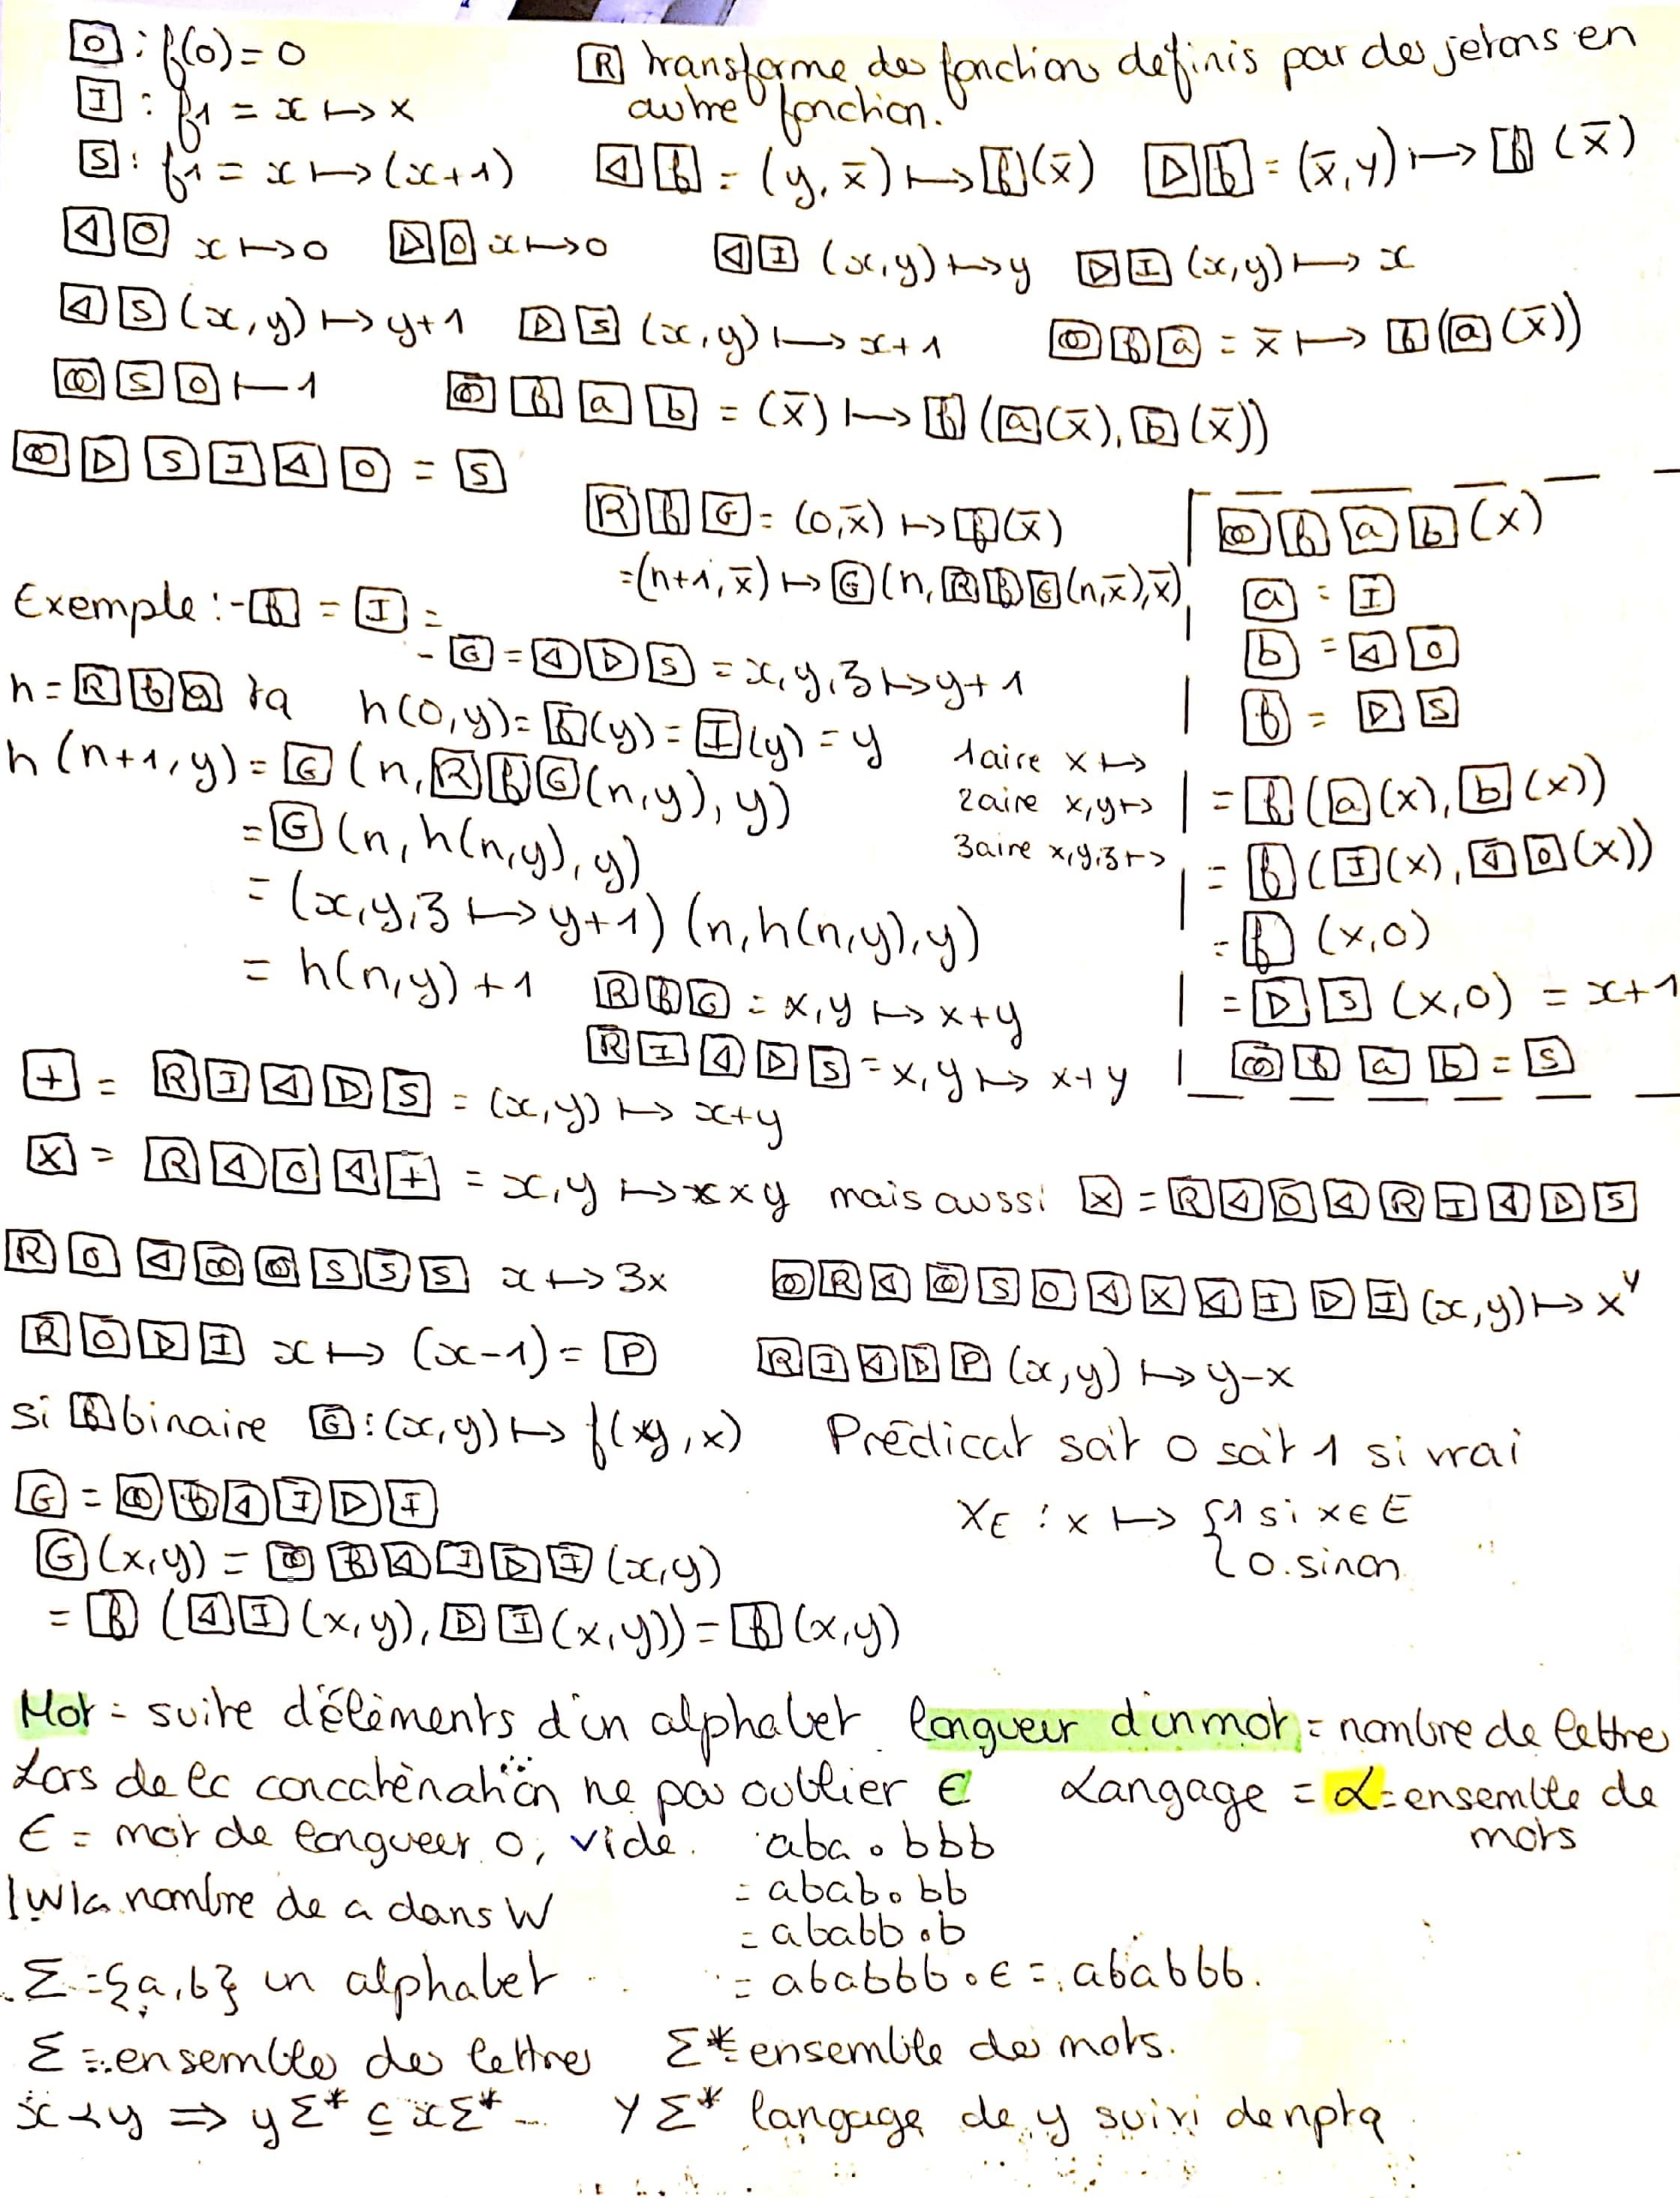 [O] : f(0) = 0
[I] : f1 = x ↦ x
[S] : f1 = x ↦ (x+1)
[R] transforme des fonctions definis par des jetons en
autre fonction.
[◁][f] = (y, x̄) ↦ [f](x̄)   [▷][f] = (x̄, y) ↦ [f](x̄)
[◁][O] x ↦ 0   [▷][O] x ↦ 0   [◁][I] (x,y) ↦ y   [▷][I] (x,y) ↦ x
[◁][S] (x,y) ↦ y+1   [▷][S] (x,y) ↦ x+1   [◎][f][a] = x̄ ↦ [f]([a](x̄))
[◎][S][O] ⊢ 1   [◎][f][a][b] = (x̄) ↦ [f]([a](x̄), [b](x̄))
[◎][▷][S][I][◁][O] = [S]
[R][f][G] = (0, x̄) ↦ [f](x̄)
= (n+1, x̄) ↦ [G](n, [R][f][G](n, x̄), x̄)
Exemple : - [f] = [I] =
- [G] = [◁][▷][S] = x, y, z ↦ y+1
h = [R][f][g] tq   h(0,y) = [f](y) = [I](y) = y
h(n+1, y) = [G](n, [R][f][G](n,y), y)
= [G](n, h(n,y), y)
= (x, y, z ↦ y+1)(n, h(n,y), y)
= h(n,y) + 1   [R][f][G] = x, y ↦ x+y
[R][I][◁][▷][S] = x, y ↦ x+y
1aire x ↦
2aire x,y ↦
3aire x,y,z ↦
[◎][f][a][b](x)
[a] = [I]
[b] = [◁][O]
[f] = [▷][S]
= [f]([a](x), [b](x))
= [f]([I](x), [◁][O](x))
= [f](x,0)
= [▷][S](x,0) = x+1
[◎][f][a][b] = [S]
[+] = [R][I][◁][▷][S] = (x,y) ↦ x+y
[x] = [R][◁][O][◁][+] = x, y ↦ x × y mais aussi [x] = [R][◁][O][◁][R][I][◁][▷][S]
[R][O][◁][◎][◎][S][S][S] x ↦ 3x   [◎][R][◁][◎][S][O][◁][X][◁][I][▷][I] (x,y) ↦ x^y
[R][O][▷][I] x ↦ (x-1) = [P]   [R][I][◁][▷][P] (x,y) ↦ y-x
si [f] binaire [G] : (x,y) ↦ f(y,x)   Prédicat soit 0 soit 1 si vrai
[G] = [◎][f][◁][I][▷][I]
χE : x ↦ {1 si x ∈ E
{0. sinon
[G](x,y) = [◎][f][◁][I][▷][I](x,y)
= [f]([◁][I](x,y), [▷][I](x,y)) = [f](x,y)
Mot = suite d'éléments d'un alphabet. longueur d'un mot = nombre de lettres
Lors de lc concaténation ne pas oublier ϵ   Langage = L = ensemble de
mots
ϵ = mot de longueur 0, vide.   aba ∘ bbb
= abab ∘ bb
|w|a nombre de a dans W
= ababb ∘ b
Σ = {a, b} un alphabet   = ababbb ∘ ϵ = ababbb.
Σ = ensemble des lettres   Σ* = ensemble des mots.
x ≺ y ⇒ yΣ* ⊆ xΣ*   YΣ* langage de y suivi de nptq